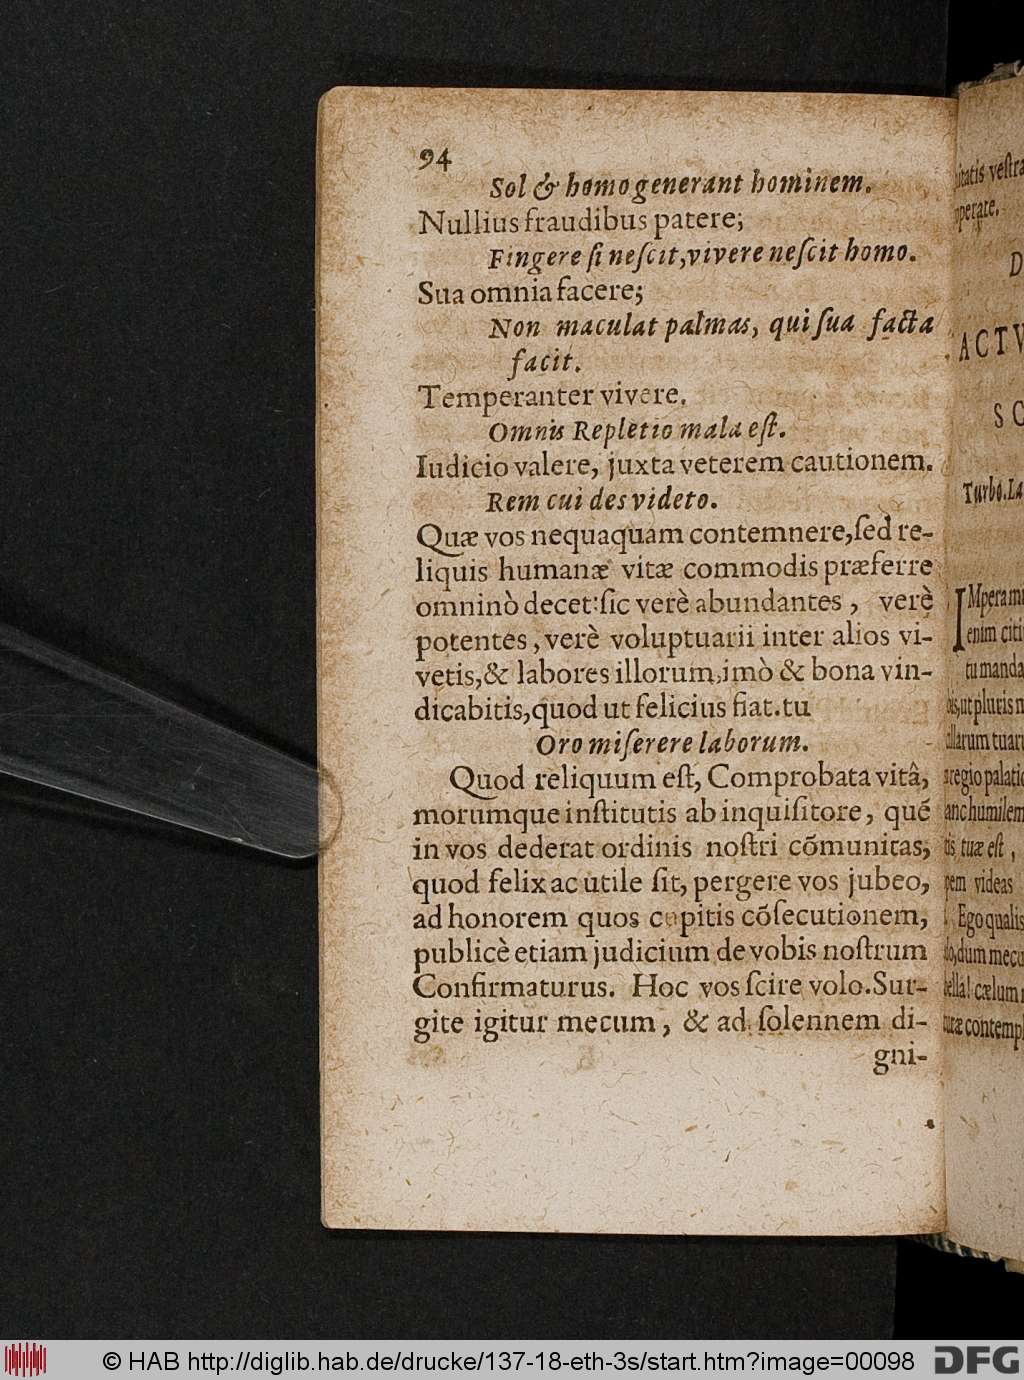 94
Sol & homo generant hominem.
Nullius fraudibus patere;
Fingere ſi neſcit, vivere neſcit homo.
Sua omnia facere;
Non maculat palmas, qui ſua facta
facit.
Temperanter vivere.
Omnis Repletio mala eſt.
Iudicio valere, juxta veterem cautionem.
Rem cui des videto.
Quæ vos nequaquam contemnere, ſed re-
liquis humanæ vitæ commodis præferre
omninò decet: ſic verè abundantes, verè
potentes, verè voluptuarii inter alios vi-
vetis, & labores illorum, imò & bona vin-
dicabitis, quod ut felicius fiat. tu
Oro miſerere laborum.
Quod reliquum eſt, Comprobata vitâ,
morumque inſtitutis ab inquiſitore, qué
in vos dederat ordinis noſtri cõmunitas,
quod felix ac utile ſit, pergere vos jubeo,
ad honorem quos cupitis cõſecutionem,
publicè etiam judicium de vobis noſtrum
Confirmaturus. Hoc vos ſcire volo. Sur-
gite igitur mecum, & ad ſolennem di-
gni-
veſtra
D
ACTV
SC
Turbo. La
IMpera mi
enim citi
tu manda
ut pluris n
tuæ eſt,
videas
Ego qualis
dum mecu
cælum
contempl
© HAB http://diglib.hab.de/drucke/137-18-eth-3s/start.htm?image=00098
DFG